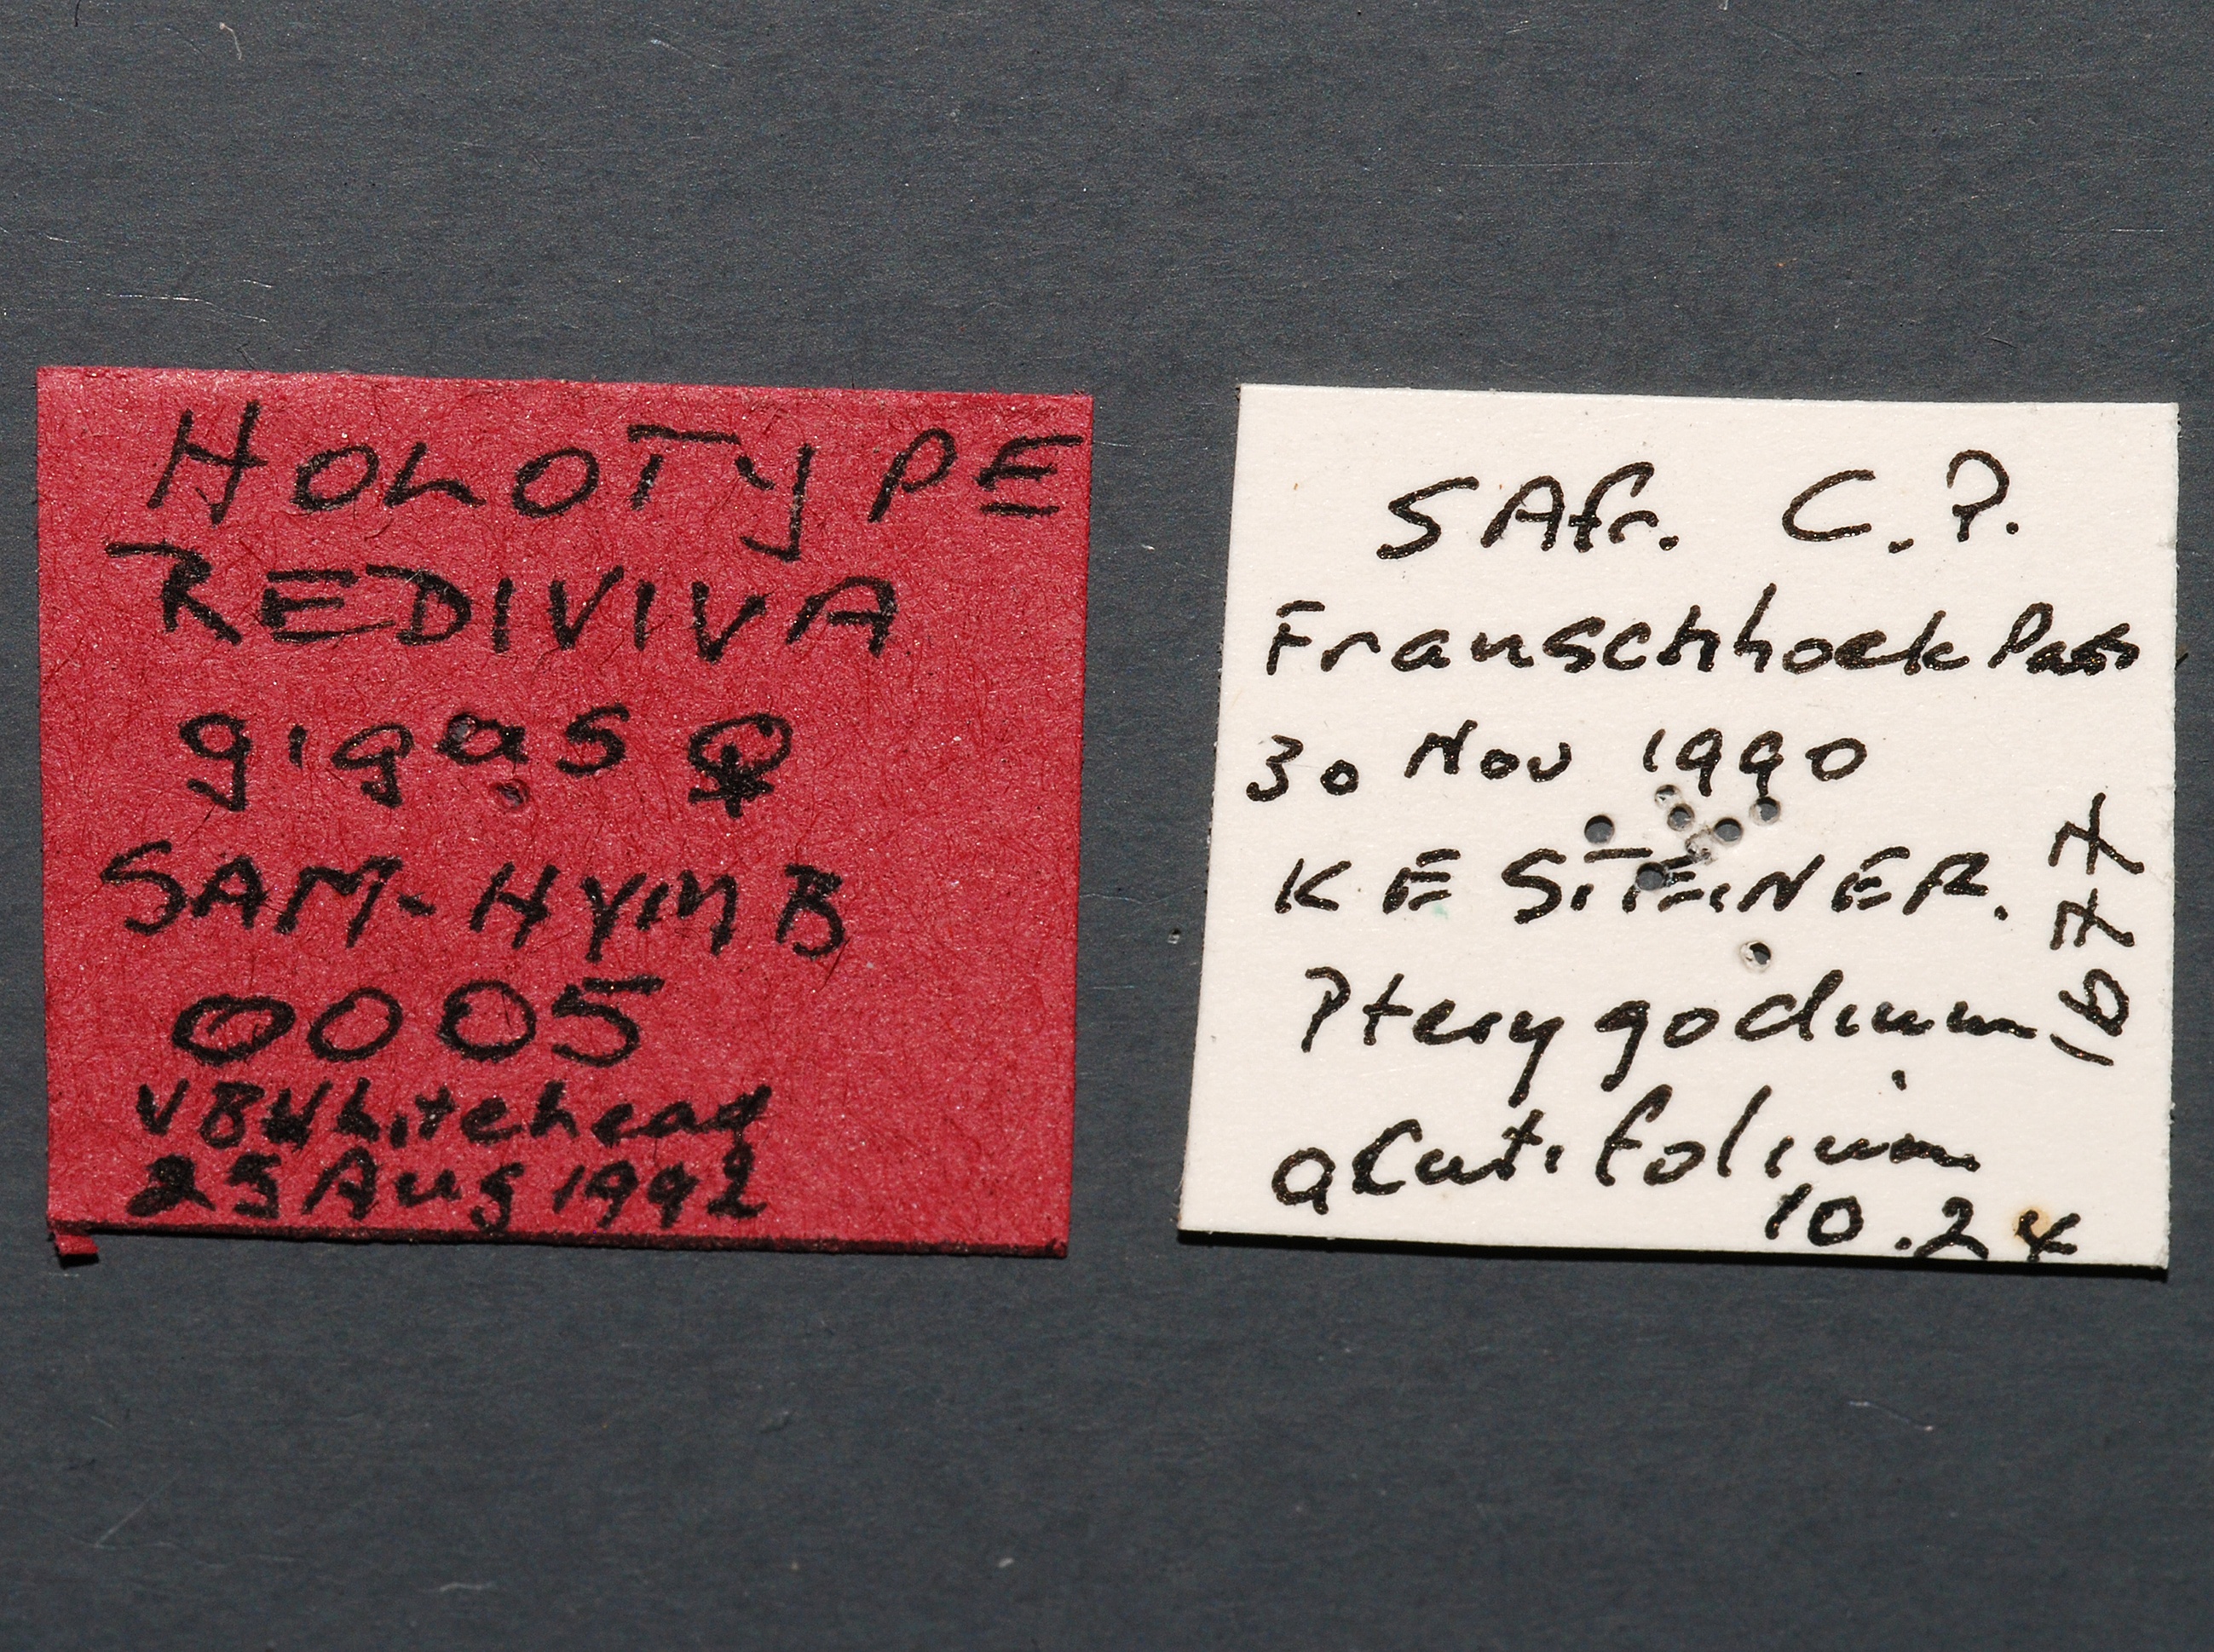 HOLOTYPE
REDIVIVA
gigas ♀
SAM-HYM B
0005
VB Whitehead
25 Aug 1992
S Afr. C.P.
Franschhoek Pass
30 Nov 1990
K E STEINER.
Pterygodium
acutifolium
10.24
1677